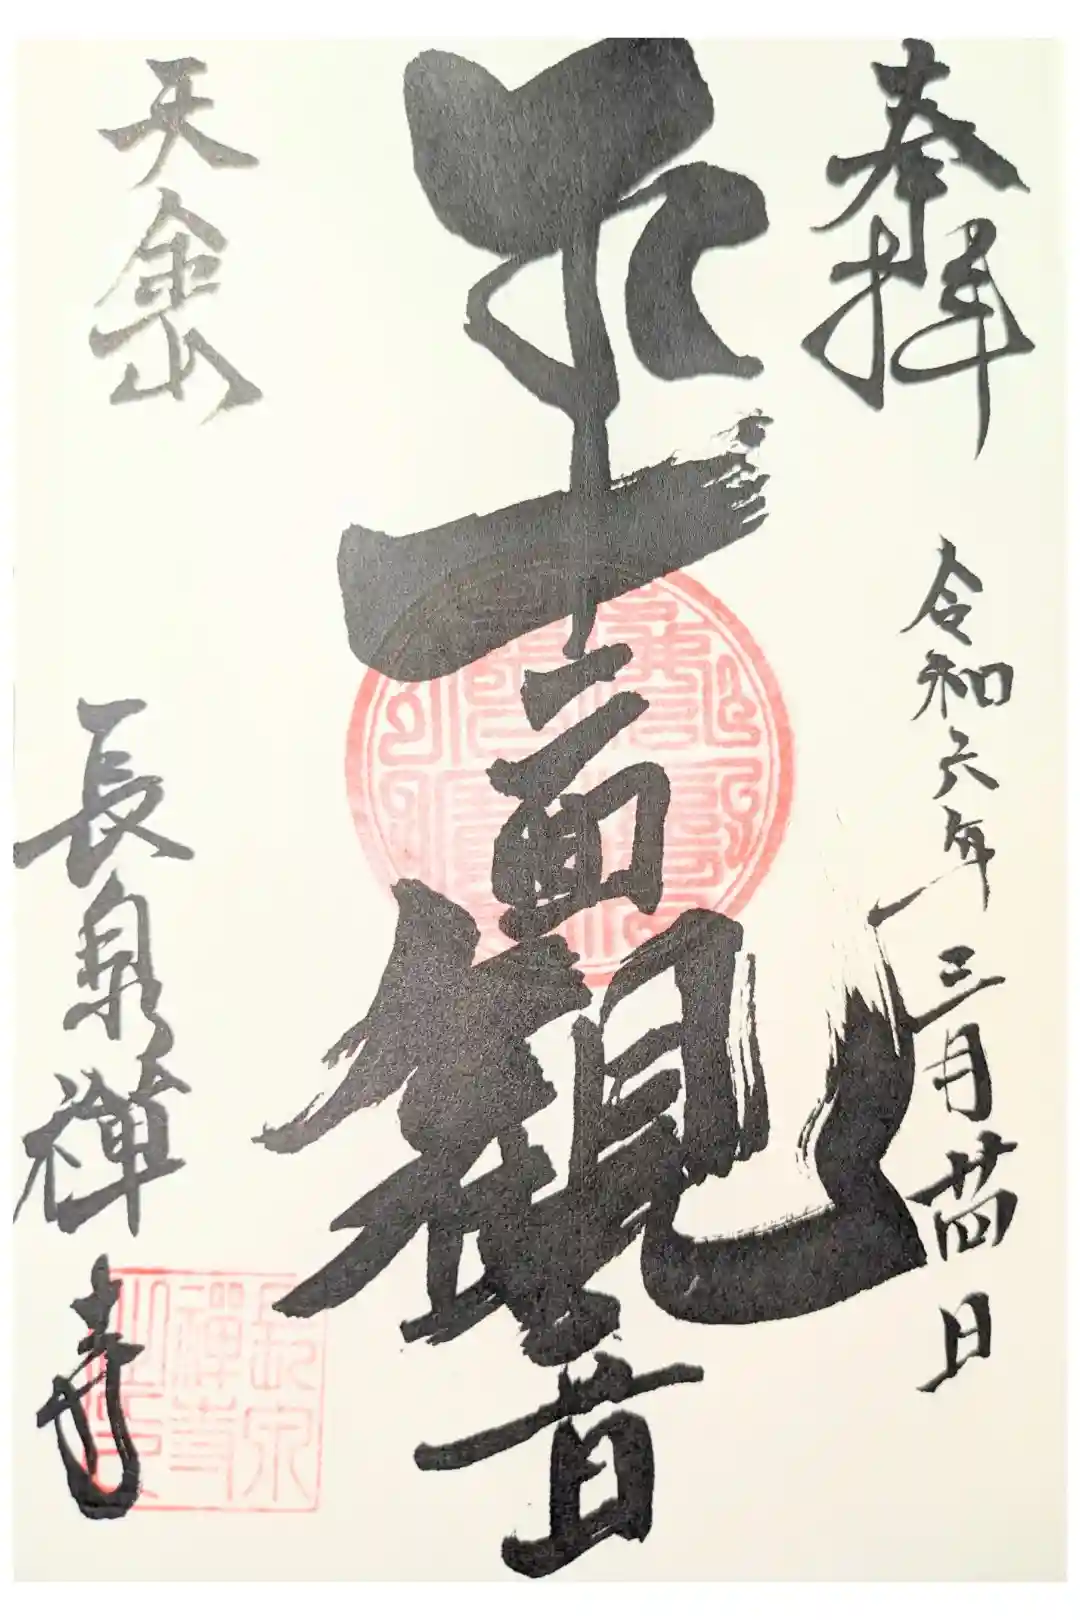 奉拝
令和六年三月廿四日
十一面観音
天金山
長泉禅寺
長泉
禅寺
之印